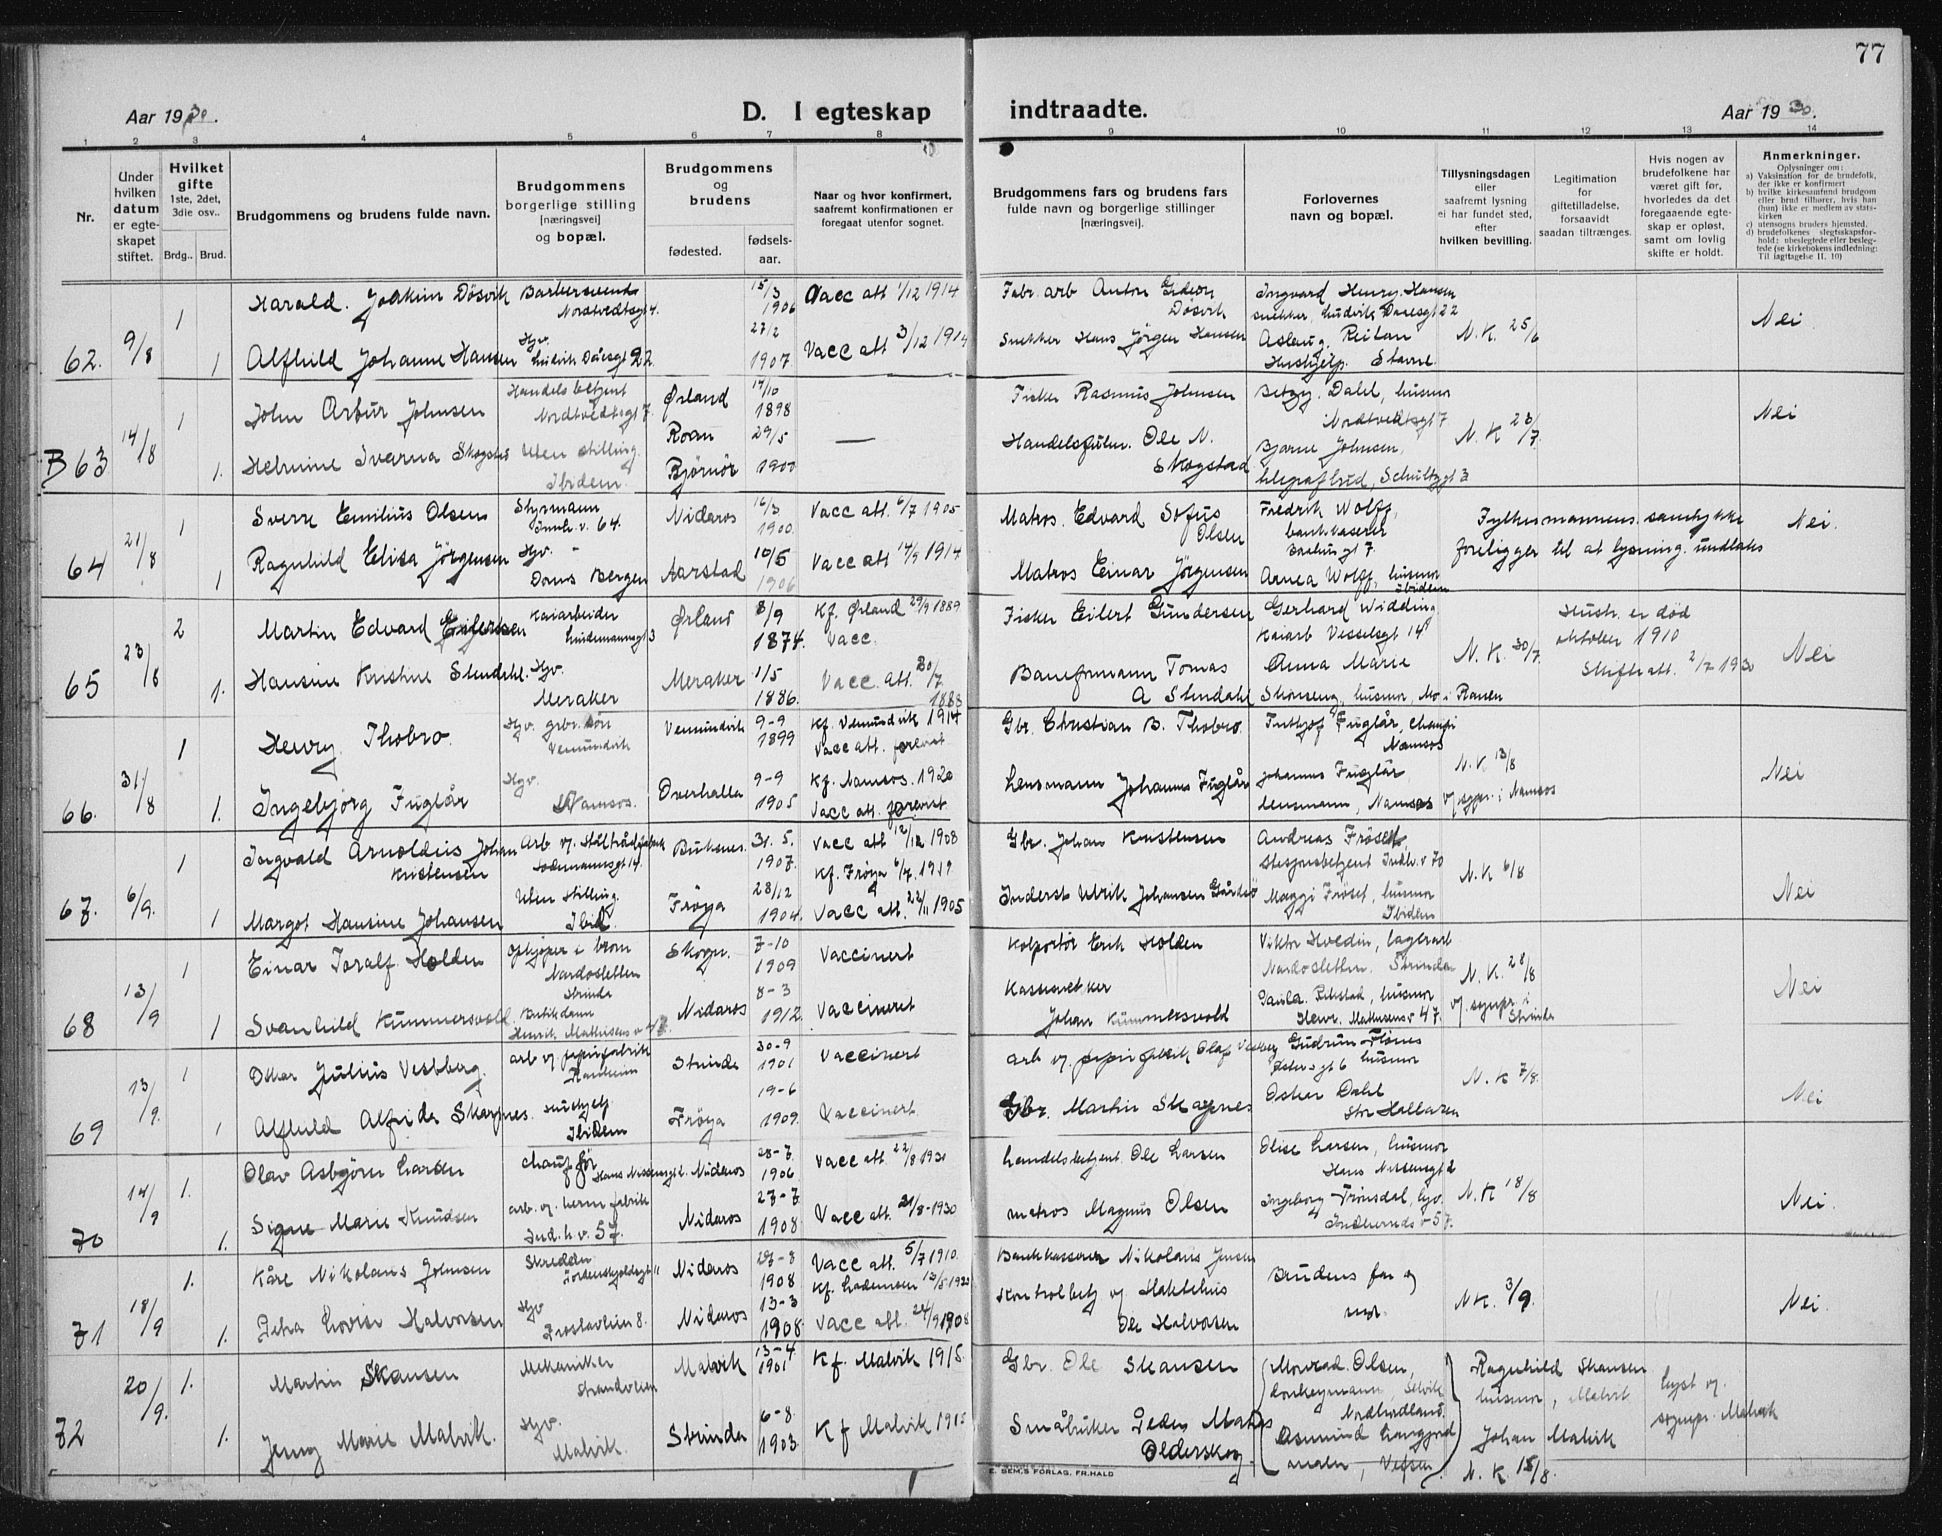 77
Aar 1930.
D. I egteskap
indtraadte.
Aar 1930.
1 2 3 4 5 6 7 8 9 10 11 12 13 14
Nr.
Under hvilken datum er egteskapet stiftet.
Hvilket gifte
1ste, 2det, 3die osv..
Brdg.. Brud.
Brudgommens og brudens fulde navn.
Brudgommens borgerlige stilling
[næringsvei]
og bopæl.
Brudgommens og brudens
fødested.
fødsels-aar.
Naar og hvor konfirmert,
saafremt konfirmationen er
foregaat utenfor sognet.
Brudgommens fars og brudens fars
fulde navn og borgerlige stillinger
[næringsvei].
Forlovernes
navn og bopæl.
Tillysningsdagen
eller
saafremt lysning
ei har fundet sted,
efter
hvilken bevilling.
Legitimation
for
giftetilladelse,
forsaavidt
saadan tiltrænges.
Hvis nogen av
brudefolkene har
været gift før,
hvorledes da det
foregaaende egte-
skap er opløst,
samt om lovlig
skifte er holdt.
Anmerkninger.
Oplysninger om:
a) Vaksination for de brudefolk,
der ikke er konfirmert
b) hvilke kirkesamfund brudgom
eller brud tilhører, hvis han
(hun) ikke er medlem av stats-
kirken
c) utensogns bruders hjemsted.
d) brudefolkenes slegtsskapsfor-
hold: ubeslegtede eller besleg-
tede (se kirkebokens indledning:
Til iagttagelse II, 10)
62. 9/8 1 Harald. Joakim Døsvik Barbersvend Nordtvedtsgt 4. 15/3 1906 Vacc att 1/12 1914 Fabr. arb Anton Gideon Døsvik Ingvard Henry Hansen snekker, Ludvik Daaesgt 22 N.K. 25/6 Nei
1 Alfhild Johanne Hansen Hgv. Ludvik Daaesgt 22 27/2 1907 Vacc att 3/12 1914 Snekker Hans Jørgen Hansen Aslaug Reitan Hushjelp. Stavne
B 63 14/8 1 John Arbur Johnsen Handelsbetjent Nordtvedtsgt 7. Ørland 14/10 1898 Fisker Rasmus Johnsen Betzy. Dahl, husmor Nordtvedtsgt 7 N.K 23/7. Nei
1. Helmine Iverna Skogstad Uten stilling. Ibidem. Roan Bjørnør 29/5 1900 — Handelsfulm. Ole N. Skogstad Bjarne Johnsen, telegrafbud, Schultzgt 3
64 21/8 1 Sverre Emilius Olsen Styrmann Innh. v. 64. Nidaros 16/3 1900. Vacc att. 6/7 1905 Matros. Edvard Sofus Olsen Fredrik Wolff, bankkaserer gt 7. Fylkesmannens samtykke foreligger til at lysning. undlates Nei.
1 Ragnhild Elisa Jørgensen Hgv. Bergen Aarstad 10/5 1906 Vacc att 14/9 1914. Matros Einar Jørgensen Arnea Wolff, husmor ibidem
65 23/8 2 Martin Edvard Eilertsen Kaiarbeider Lindemannsgt 3 Ørland 8/9 1874. Kf. Ørland 29/9 1889 Vacc. Fisker Eilert Gundersen Gerhard Widding Kaiarb Vesselsgt 14 N.K. 30/7. Hustr. er død oktober 1910 Skifteatt. 2/7 1930 Nei
1. Hansine Kristine Stendahl. Hgv. Meraker Meraker 1/5 1886. Vacc. att. 20/7 1888 Baneformann Tomas A Stendahl Anna Marie husmor, Mo i Ranen
66. 31/8 1 Henry. Thobro. Hgv. grbr. søn Vemundvik Vemundvik 9-9 1899 Kf. Vemundvik 1914 Vacc att. forevist Gbr. Christian B. Thobro. Fritjof Fuglår, Namsos N.K 13/8 v/ sogpr. i Namsos Nei
1. Ingebjørg Fuglår Hgv. Namsos. Overhalla 9-9 1905 Kf. Namsos. 1920 Vacc att. forevist. Lensmann Johannes Fuglår Johannes Fuglår lensmann, Namsos
67. 6/9. 1 Ingvald Arnoldus Johan Kristensen Arb v/ Ståltrådfabrik 14. Buksnes. 31. 5. 1907. Vacc att 12/12 1908 Gbr. Johan Kristensen Andreas Frøseth, Stasjonsbetjent Indh. v 70 N.K 6/8 Nei
1 Margot Hansine Johansen Uten Stilling. Ibid. Frøya 28/12 1904. Kf. Frøya 6/7. 1919 Vacc att. 22/11 1905 Inderst Ulrik Johansen Maggi Frøset, husmor Ibidem
68 13/9 1 Einar Toralf. Holden Opkjøper i Nardosletten Strinda Skogn. 7-10 1909 Vaccinert Kolportør Erik Holden Viktor Hvedin, lagerarb Nardosletten. Strinda N.K. 28/8 v/ sognpr. i Strinda Nei
1 Svanhild Kummersvold. Butikdame Henrik. Mathisens v 47. Nidaros 8-3 1912. Vaccineret Johan Kummersvold Paula husmor Henr. Mathisens v 47.
69 13/9. 1 Julius Vestberg. arb v/ papirfabrik Ranheim Strinda 30-9 1901 Vaccinert arb v/ papirfabrik Olaf Vestberg Gudrun husmor N.K 7/8. Nei
1 Alfhild Alfrida Skarpnes. hushjelp Ibidem Frøya 19-6 1909. Vaccinert Gbr. Martin Skarpnes Dahl
70 14/9 1. Olav Asbjørn Larsen chauffør Hans Nissensgt 2. Nidaros 28-7. 1906 Vacc att 22/8 1930 handelsbetjent. Ole Larsen Elise Larsen, husmor Hans Nissensgt 2 N.K 18/8 Nei.
1. Signe Marie Knudsen arb. v/ herm fabrik Ind. h v. 57. Nidaros 27-7 1908. Vacc att. 21/8-1930 matros Magnus Olsen Ingeborg Trønsdal, hgv. Indherreds v 57.
71 18/9 1. Kåre Nikolaus Johnsen Skredder Tordenskjoldsgt 11 Nidaros 27-8 1908 Vacc att. 5/7 1910. Kf. Lademoen Bankkasserer Nikolaus Jensen Brudens far og mor. N.K. 3/9. Nei.
1. Petra Lovise Halvorsen Hgv 8. Nidaros 13-3 1908. Vacc att. 24/9 1908 Kontrolbetj v/ Ole Halvorsen
72 20/9. 1. Martin Skansen Mekaniker Strandveien Malvik 13-4 1901 Kf. Malvik 1915. Gbr. Ole Skansen Monrad. Olsen, donkeymann, Nordhordland. Ragnhild Skansen husmor, Malvik Lyst v/ sognepr. Malvik
1. Jenny Marie Malvik. Hgv. Malvik. Strinda 6-8. 1903. Kf Malvik 1918 Småbruker Peder Olderskog Asmund, Vefsn Johan Malvik N.K 15/8.
E. SEM,S FORLAG, FR.HALD